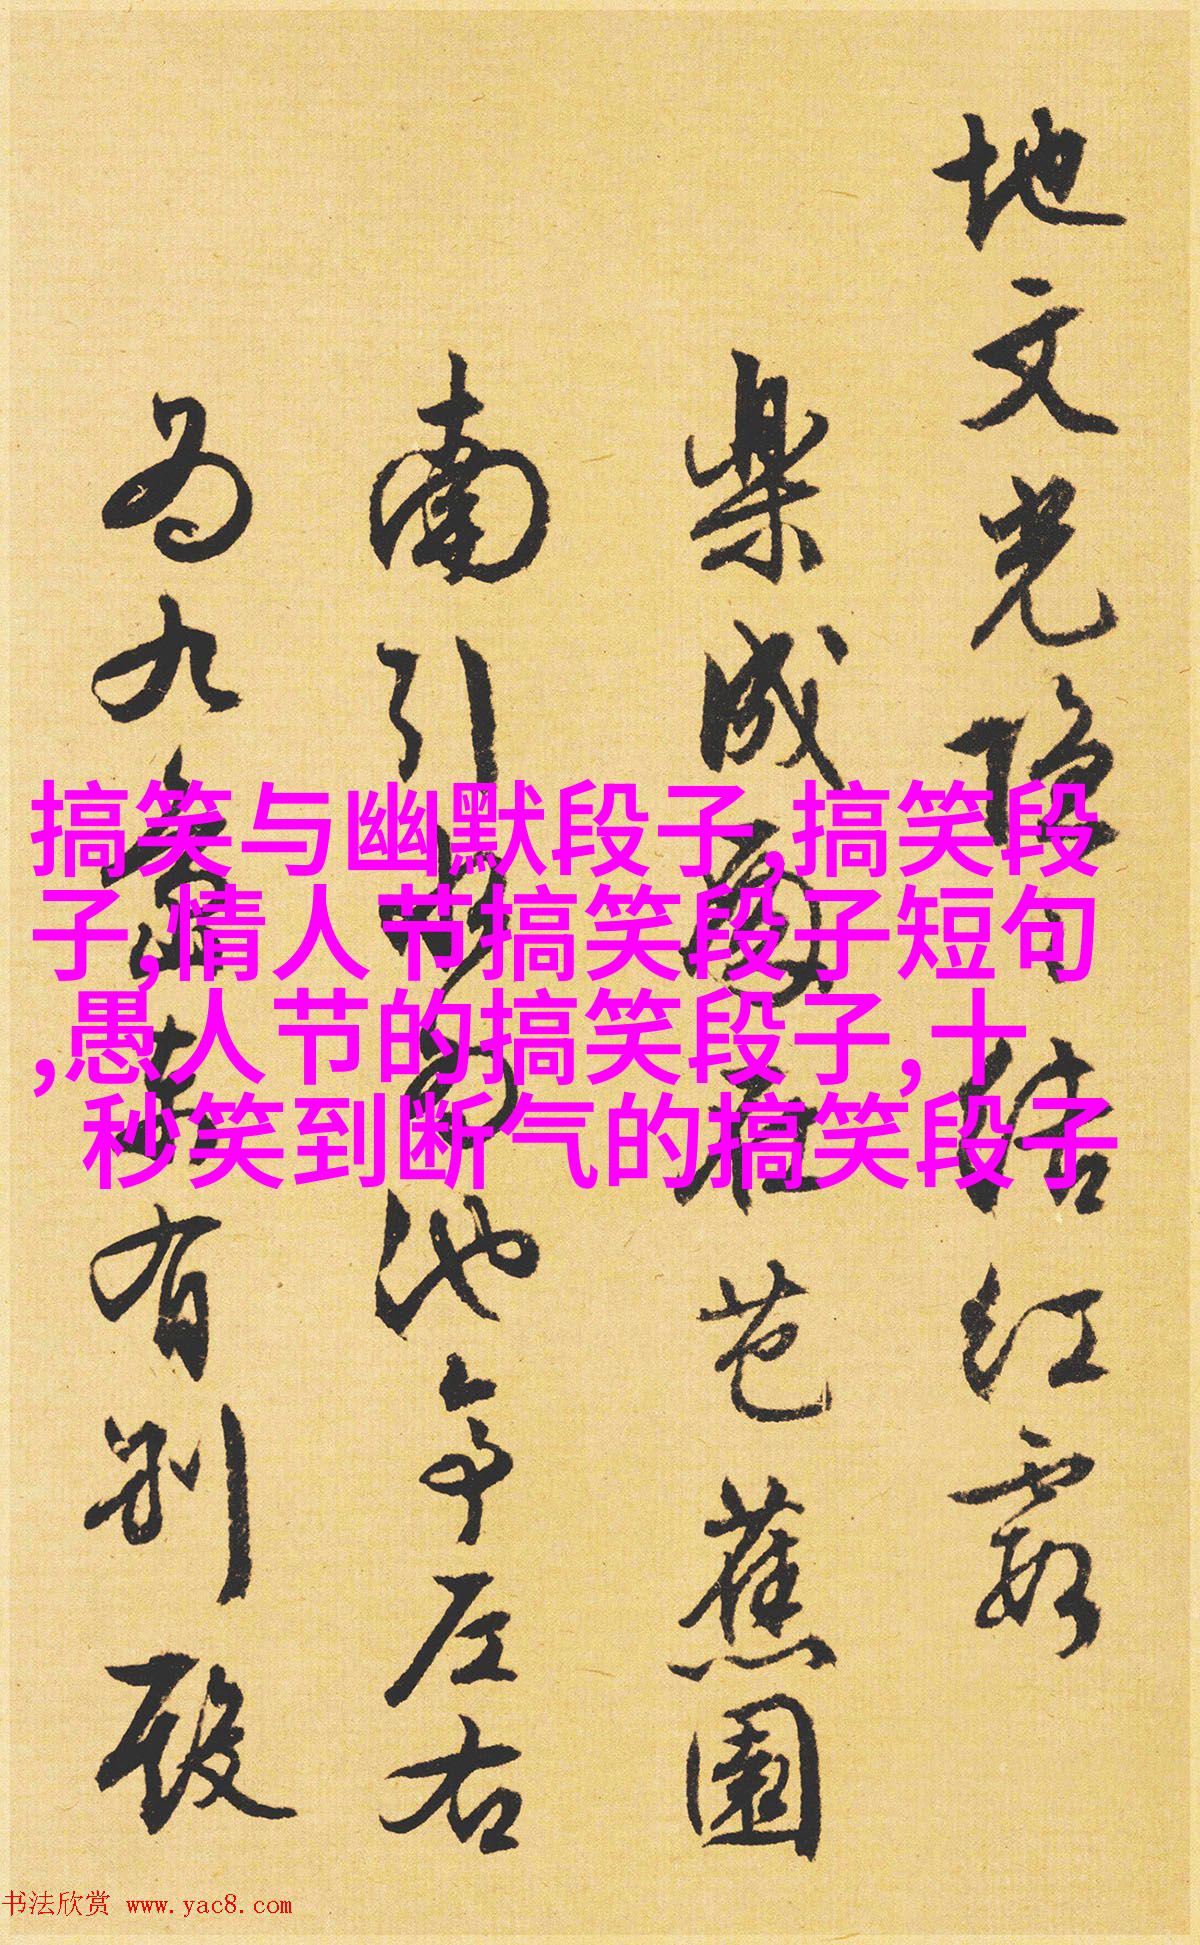 地文光隐结红霞
樂成芭蕉園
南引池亭左右
为九有别殿
搞笑与幽默段子,搞笑段
子,情人节搞笑段子短句
,愚人节的搞笑段子,十
秒笑到断气的搞笑段子
书法欣赏 www.yac8.com